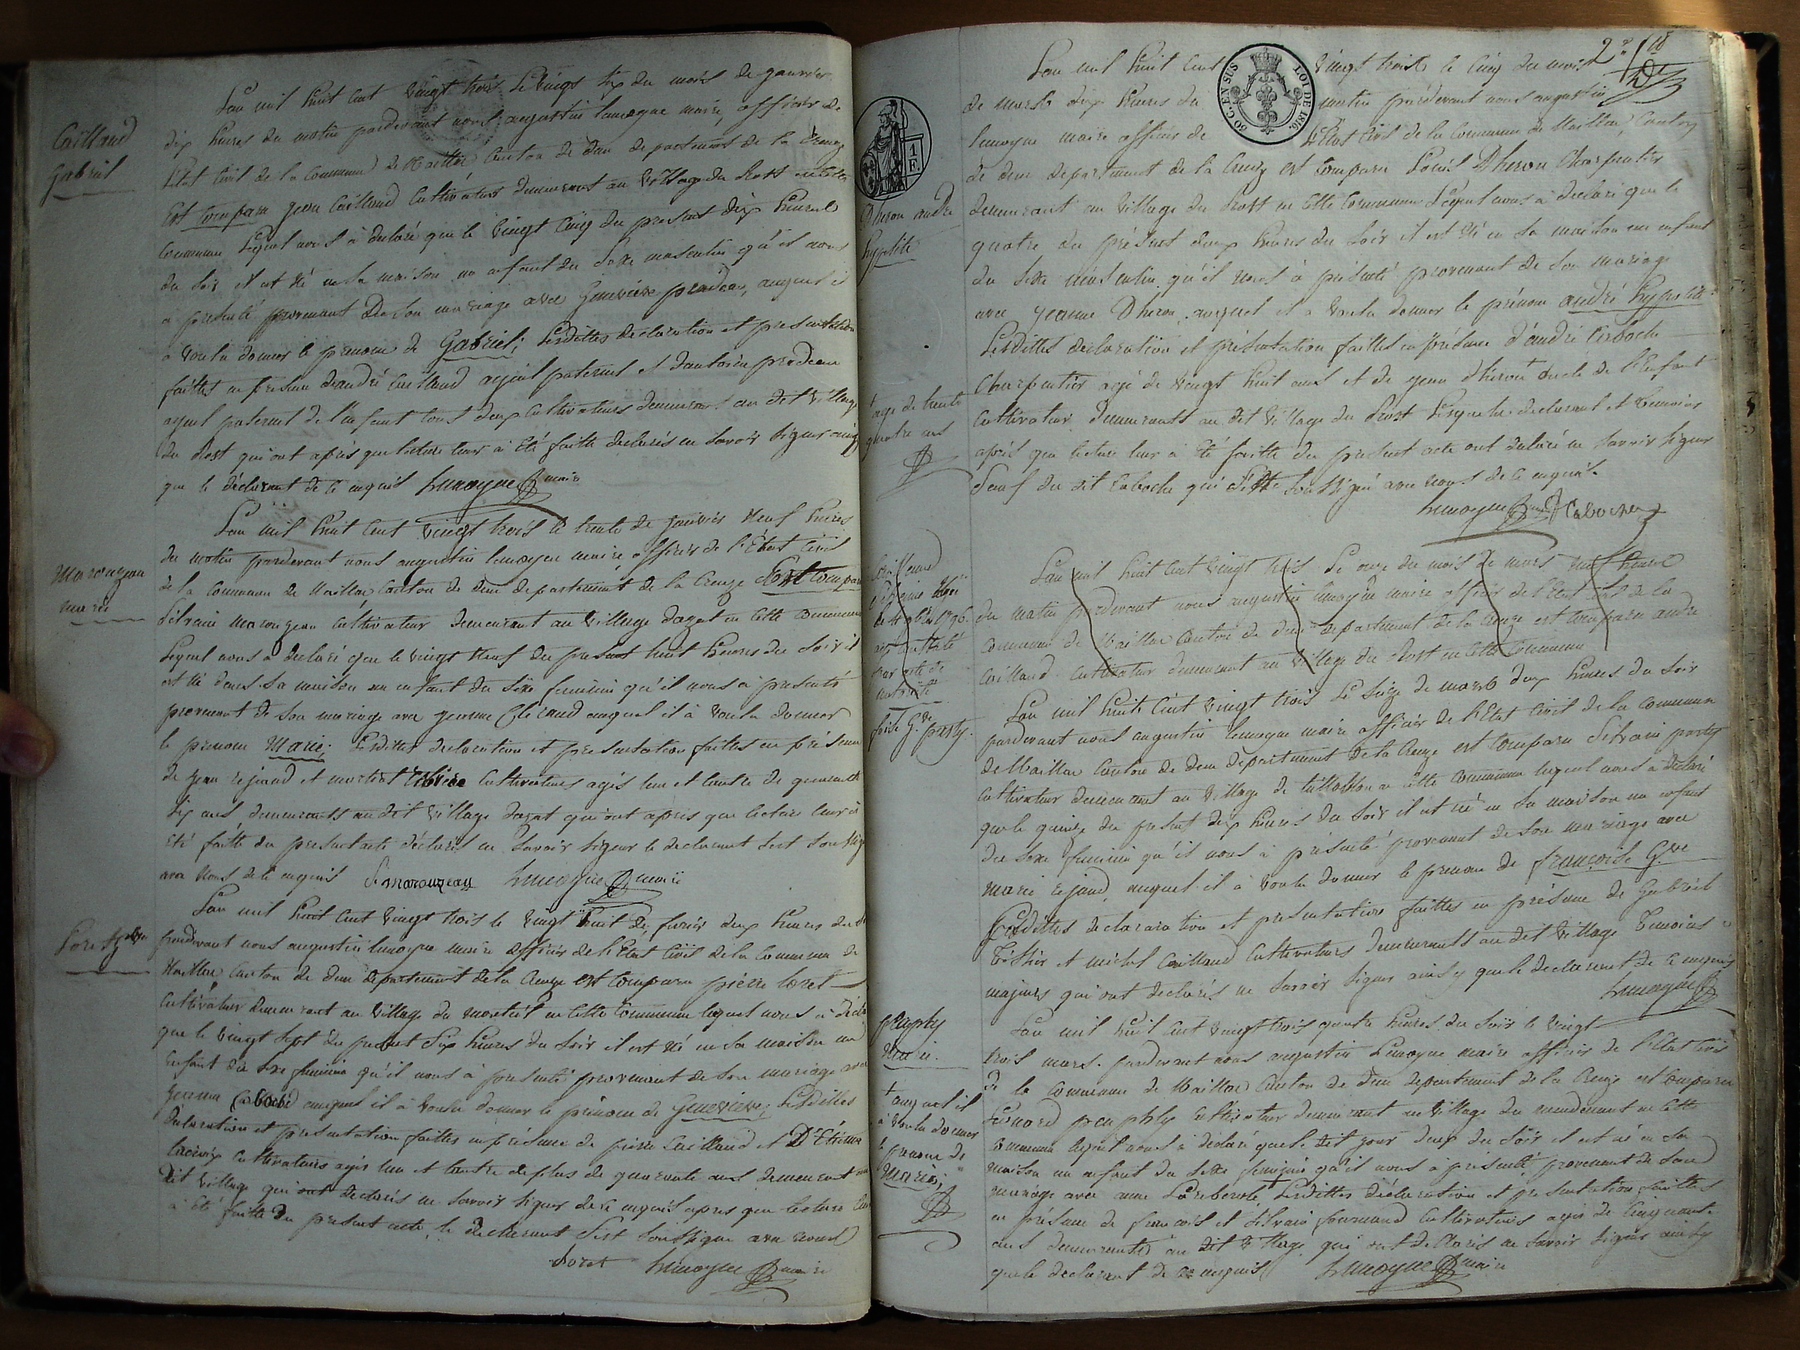 Caillaud
Gabriel
L'an mil huit cent vingt trois le vingt six du mois de janvier
dix heures du matin pardevant nous augustin lemoyne maire officier de
l'Etat civil de la commune de canton de dun departement de la Creuze
Est comparu jean Caillaud Cultivateur demeurant au village du Prost en cette
commune lequel nous à declaré que le vingt cinq du present dix heures
du soir il est né en sa maison un enfant du sexe masculin qu'il nous
a presenté provenant de son mariage avec Genevieve pradeau, auquel il
à voulu donner le prenom de Gabriel; lesdittes declaration et presentation
faittes en presence d'andré Caillaud ayeul paternel et d'antoine pradeau
ayeul paternel de l'enfant tous deux cultivateurs demeurant au dit village
du Prost qui ont après que lecture leur à été faitte declarés ne savoir signer ainsy
que le déclarant de ce enquis lemoyne maire
Marouzeau
marie
L'an mil huit cent vingt trois le trente de janvier neuf heures
du matin pardevant nous augustin lemoyne maire officier de l'Etat civil
de la commune de canton de dun departement de la Creuze Est comparu
silvain marouzeau cultivateur demeurant au village dazat en cette commune
lequel nous a declaré que le vingt neuf du present huit heures du soir il
est né dans sa maison un enfant du sexe feminin qu'il nous à presenté
provenant de son mariage avec jeanne auquel il à voulu donner
le prenom Marie. lesdittes declaration et presentation faittes en présence
de jean rejaud et cultivateurs agés l'un et l'autre de quarante
six ans demeurants audit village dazat qui ont apres que lecture leur à
été faitte du present acte déclarés ne savoir signer le declarant s'est soussigné
avec nous de ce enquis S. marouzeau lemoyne maire
Loret
L'an mil huit cent vingt trois le vingt huit de fevrier deux heures du
pardevant nous augustin lemoyne maire officier de l'Etat civil de la commune de
canton de dun departement de la Creuze est comparu pierre loret
cultivateur demeurant au village du monteil en cette commune lequel nous à déclaré
que le vingt sept du present six heures du soir il est né en sa maison un
enfant du sexe feminin qu'il nous à presenté provenant de son mariage avec
jeanne auquel il à voulu donner le prénom de Genevieve; lesdittes
declaration et presentation faittes en présence de pierre Caillaud et D'Etienne
cultivateurs agés l'un et l'autre de plus de quarante ans demeurant au
dit village qui ont declarés ne savoir signer de ce enquis apres que lecture leur
à été faitte du present acte, le declarant s'est soussigné avec nous
loret lemoyne maire
2e
50 C. EN SUS
LOI DE 1816.
1 F.
Dheron andré
hypolite
L'an mil huit cent vingt trois le cinq du mois
de mars dix heures du matin pardevant nous augustin
lemoyne maire officier de l'Etat civil de la commune de canton
de dun departement de la Creuze est comparu Louis Dheron charpentier
demeurant au village du Prost en cette commune lequel nous à declaré que le
quatre du présent deux heures du soir il est né en sa maison un enfant
du sexe masculin qu'il nous à présenté provenant de son mariage
avec jeanne Dheron, auquel il à voulu donner le prénom andré hypolite
lesdittes déclaration et présentation faittes en présence d'andré Laboche
charpentier agé de vingt huit ans et de jean dheron oncle de l'enfant
+ agé de trente
quatre ans
cultivateur demeurants au dit village du Prost lesquels declarant et temoins
après que lecture leur à été faitte du present acte ont déclaré ne savoir signer
sauf du dit Laboche qui s'est soussigné avec nous de ce enquis
lemoyne maire Laboche
L'an mil huit cent vingt trois le onze du mois de mars neuf heures
du matin pardevant nous augustin lemoyne maire officier de l'Etat civil de la
commune de canton de dun departement de la Creuze est comparu andré
Caillaud cultivateur demeurant au village du Prost en cette commune
fse Gve porty.
L'an mil huit cent vingt trois le seize de mars deux heures du soir
pardevant nous augustin lemoyne maire officier de l'Etat civil de la commune
de canton de dun departement de la Creuze est comparu silvain porty
cultivateur demeurant au village de en cette commune lequel nous a declaré
que le quinze du present dix heures du soir il est né en sa maison un enfant
du sexe feminin qu'il nous à présenté provenant de son mariage avec
marie rejaud, auquel il à voulu donner le prenom de françoise Gve
lesdittes declaration et presentation faittes en présence de Gabriel
et michel Caillaud cultivateurs demeurants au dit village temoins
majeurs qui ont declarés ne savoir signer ainsy que le declarant de ce enquis
lemoyne
Marie.
L'an mil huit cent vingt trois quatre heures du soir le vingt
trois mars. pardevant nous augustin Lemoyne maire officier de l'Etat civil
de la commune de canton de dun departement de la Creuze est comparu
cultivateur demeurant au village du en cette
commune lequel nous à declaré que le dit jour deux du soir il est né en sa
maison un enfant du sexe feminin qu'il nous à présenté provenant de son
+ auquel il
à voulu donner
le prenom de
Marie;
mariage avec anne lesdittes déclaration et presentation faittes
en présence de françois et silvain cultivateurs agés de cinquante
ans demeurants au dit village qui ont declarés ne savoir signer ainsy
que le declarant de ce enquis lemoyne maire